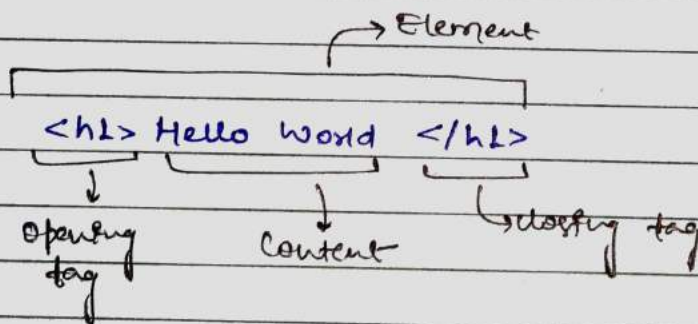 Element
<h1> Hello World </h1>
opening tag
Content
closing tag